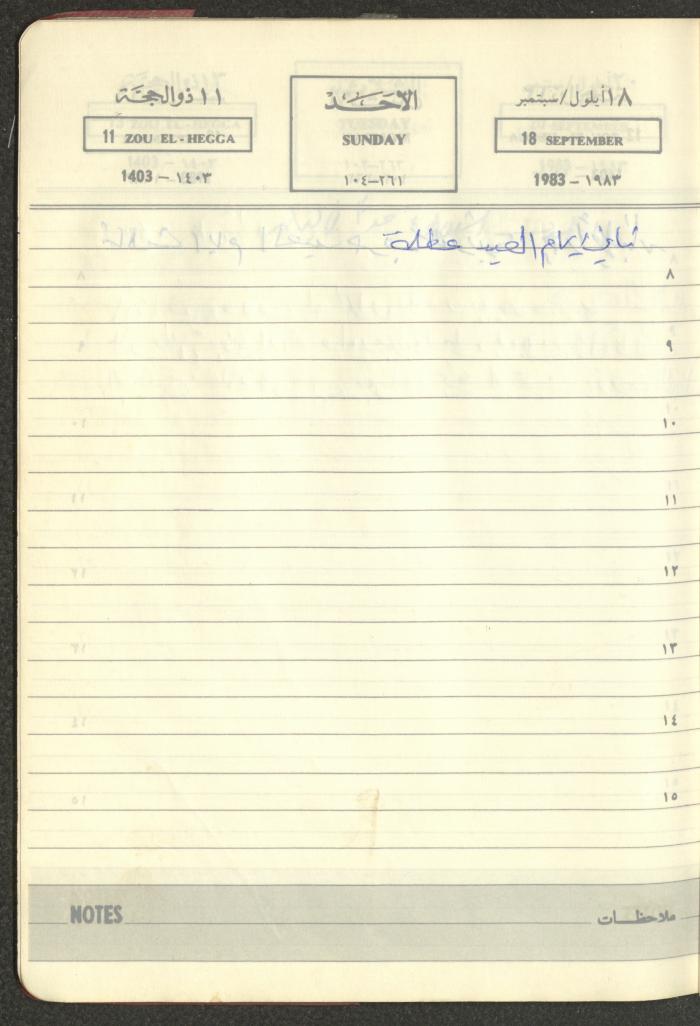 ١٨ أيلول/سبتمبر
18 SEPTEMBER
1983 – ١٩٨٣
الأحَد
SUNDAY
١٠٤–٢٦١
١١ ذو الحجَّة
11 ZOU EL-HEGGA
1403 – ١٤٠٣
ثاني ايام العيد عطلة
٨
٩
١٠
١١
١٢
١٣
١٤
١٥
ملاحظات
NOTES